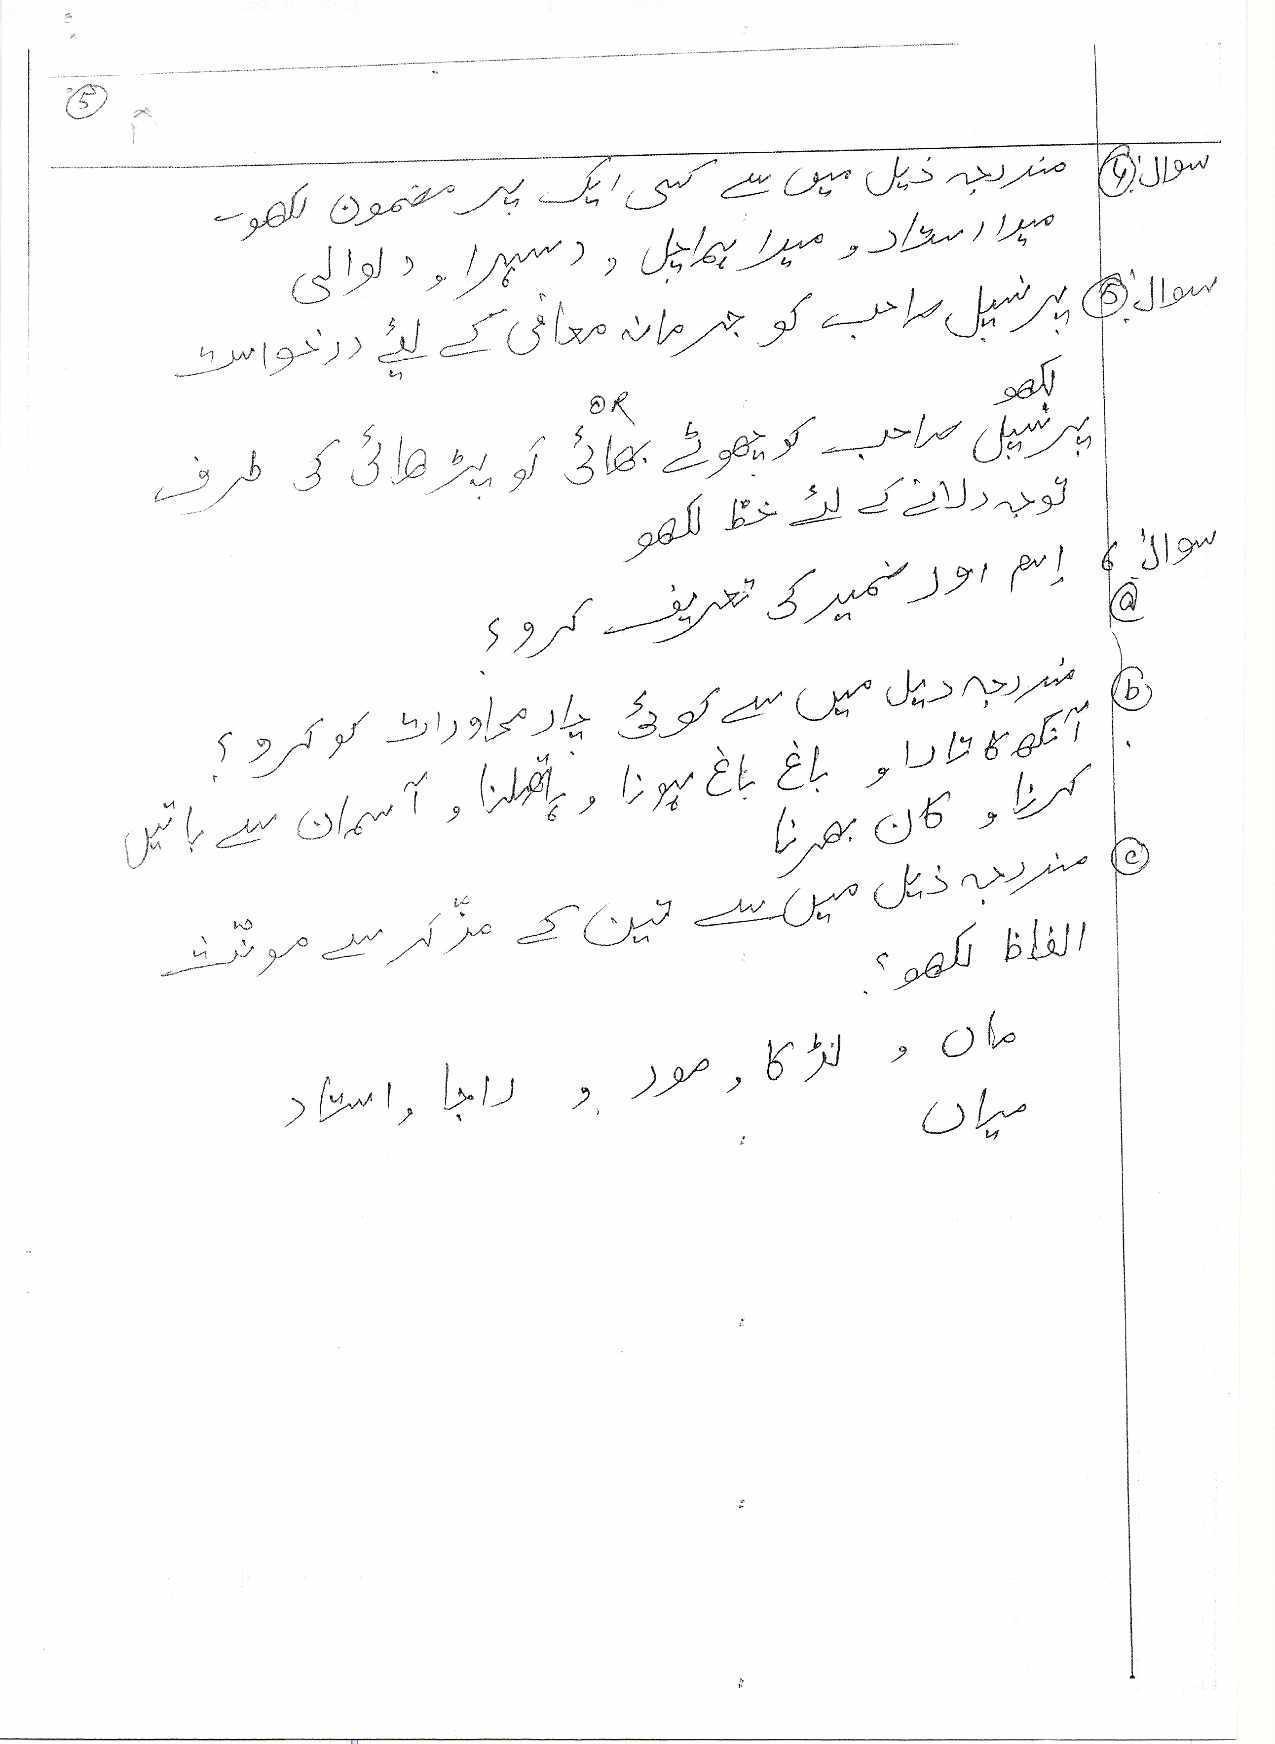 5
سوال: 4 مندرجہ ذیل میں سے کسی ایک پر مضمون لکھو۔
میرا استاد ، میرا ہماچل ، دسہرا ، دلوالی
سوال: 5 پرنسپل صاحب کو جرمانہ معافی کے لئے درخواست
لکھو
OR
پرنسپل صاحب کو چھوٹے بھائی کو پڑھائی کی طرف
توجہ دلانے کے لئے خط لکھو
سوال: 6 اسم اور ضمیر کی تعریف کرو ؟
a
b مندرجہ دیل میں سے کوئی چار محاورات کو کرو ؟
آنکھ کا تارا ، باغ باغ ہونا ، ، آسمان سے باتیں
کرنا ، کان بھرنا
c مندرجہ ذیل میں سے تین کے مذّکر سے مونّث
الفاظ لکھو ؟
ماں ، لڑکا ، مور ، راجا ، استاد
میاں